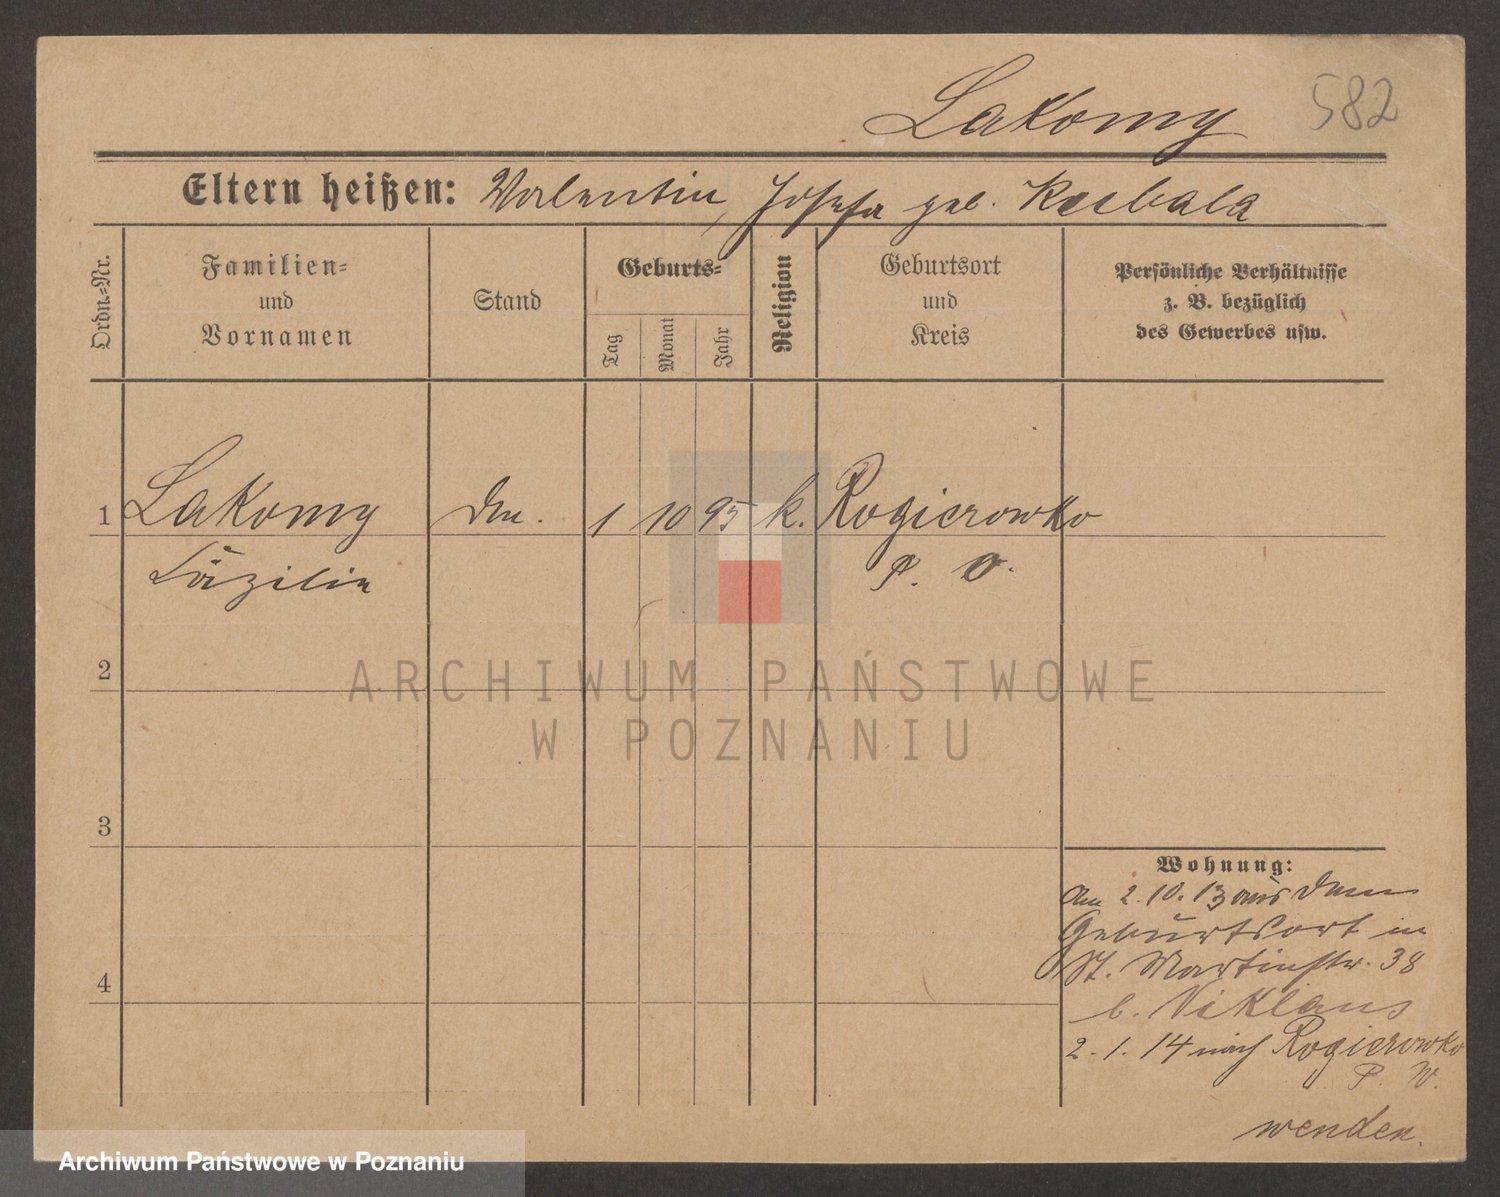 Lakomy 582
Eltern heißen: Valentin, Josefa geb. Kubala
Ordn.-Nr.
Familien-
und
Vornamen
Stand
Geburts-
Tag
Monat
Jahr
Religion
Geburtsort
und
Kreis
Persönliche Verhältnisse
z. B. bezüglich
des Gewerbes usw.
1 Lakomy 1 10 95 k. Rogierowko
Cäzilie P. O.
2
3
4
Wohnung:
Am 2.10.13 aus dem
Geburtsort in
St. Martinstr. 38
b. Niklaus
2.1.14 nach Rogierowko
P. W.
wenden.
ARCHIWUM PAŃSTWOWE
W POZNANIU
Archiwum Państwowe w Poznaniu